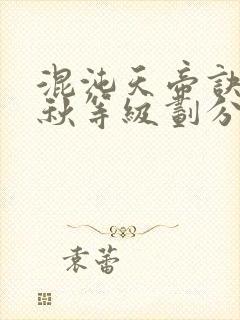 混沌天帝訣
秋等級劃分
袁蕾